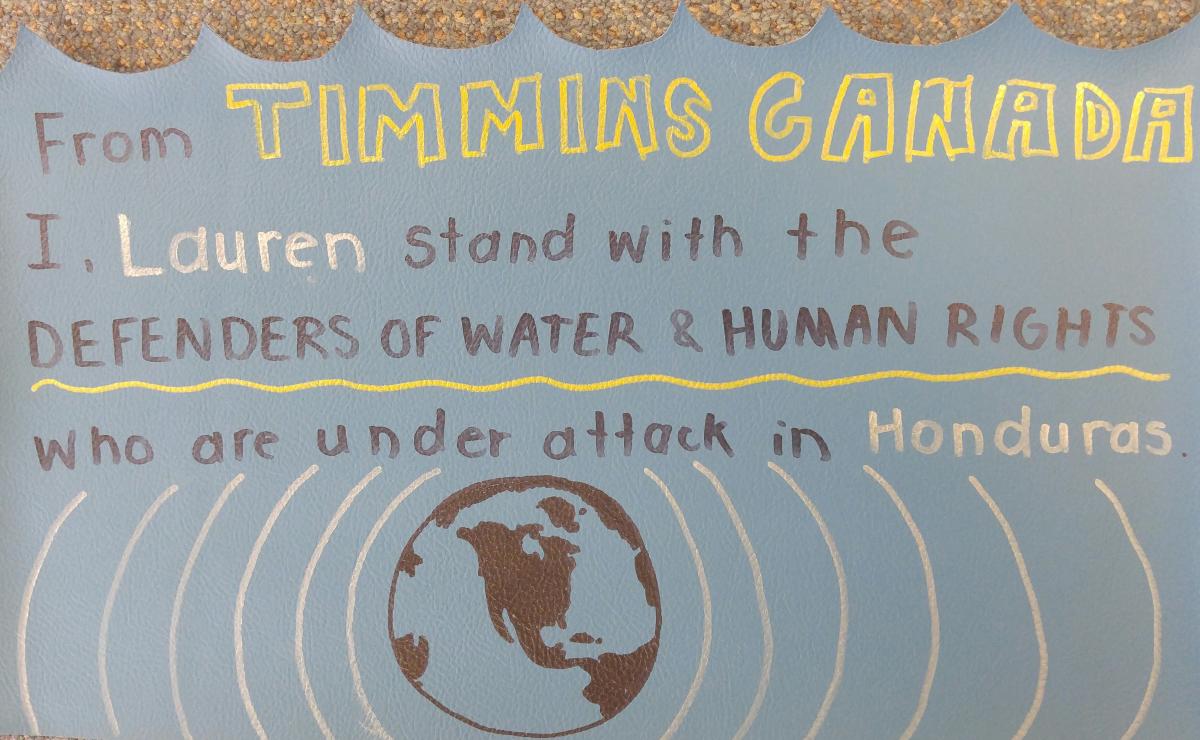 From TIMMINS CANADA
I, Lauren stand with the
DEFENDERS OF WATER & HUMAN RIGHTS
who are under attack in Honduras.